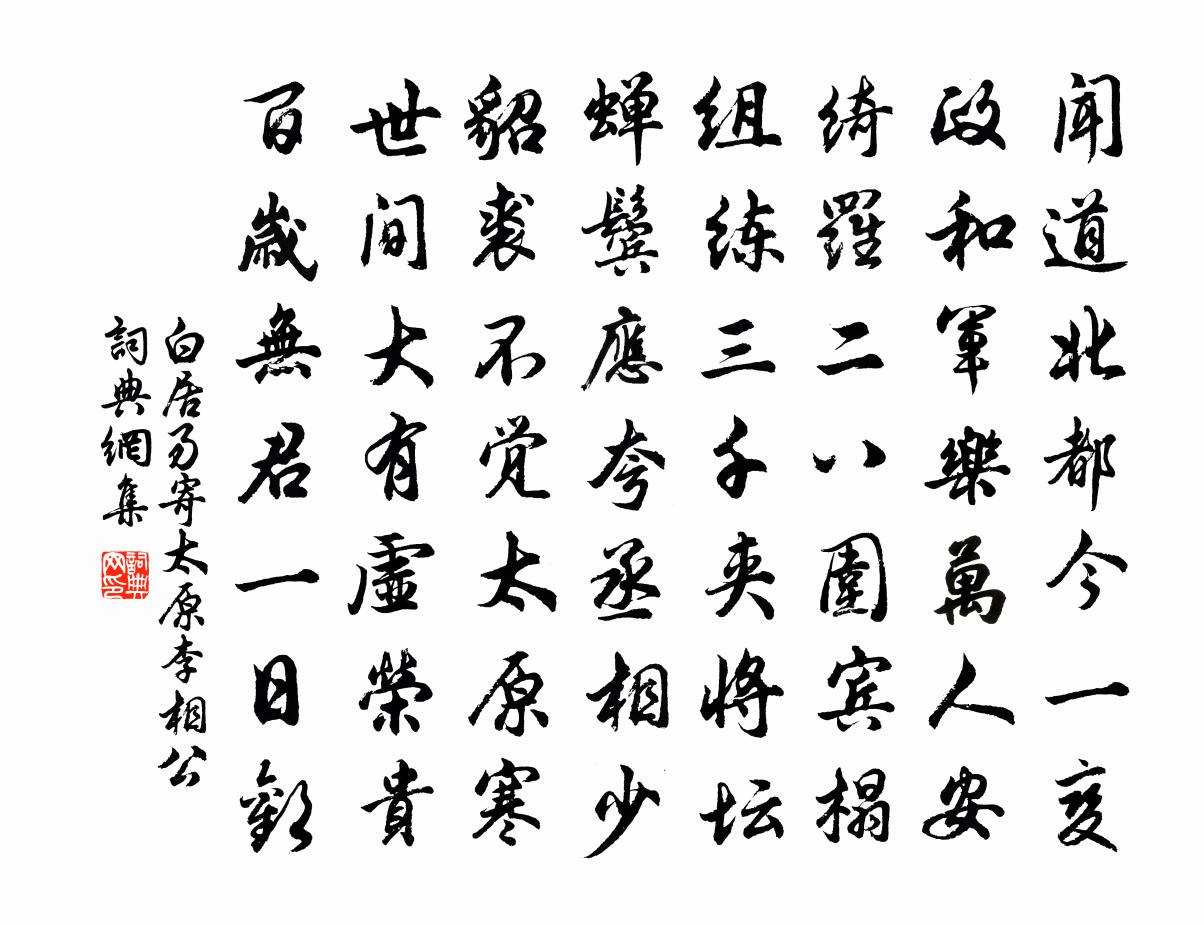 闻道北都今一变
政和军樂萬人安
绮羅二八圍宾榻
组练三千夹将坛
蝉鬓應夸丞相少
貂裘不觉太原寒
世间大有虚榮貴
百歲無君一日歡
白居易寄太原李相公
詞典網集
詞典网印